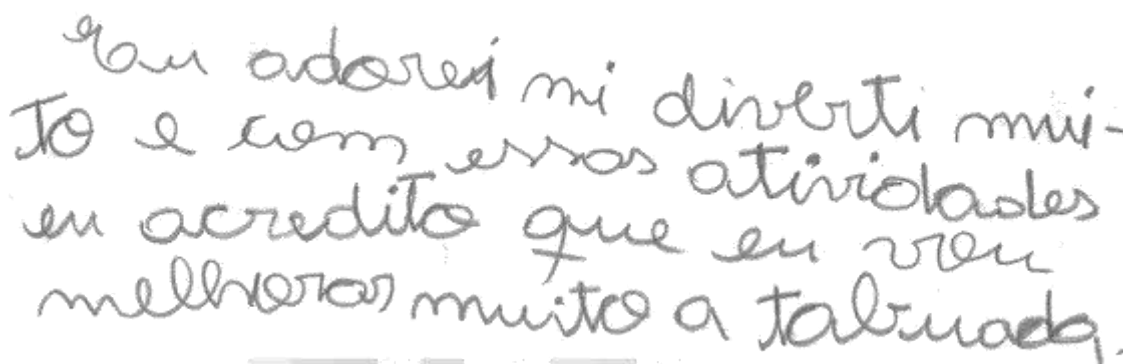 Eu adorei mi diverti mui-
to e com essas atividades
eu acredito que eu vou
melhorar muito a tabuada.